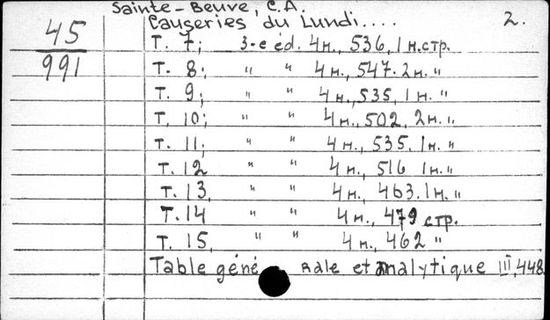 Sainte-Beuve, C.A.
Causeries du Lundi.... 2.
45
991
Т. 7; 3-е éd. 4н., 536, 1н.стр.
Т. 8; " " 4н., 547. 2н. "
Т. 9; " " 4н., 535, 1н. "
Т. 10; " " 4н., 502, 2н. "
Т. 11; " " 4н., 535. 1н. "
Т. 12 " " 4н., 516 1н. "
Т. 13, " " 4н., 463. 1н. "
Т. 14 " " 4н., 479 стр.
Т. 15, " " 4н., 462 "
Table générale et analytique III, 448